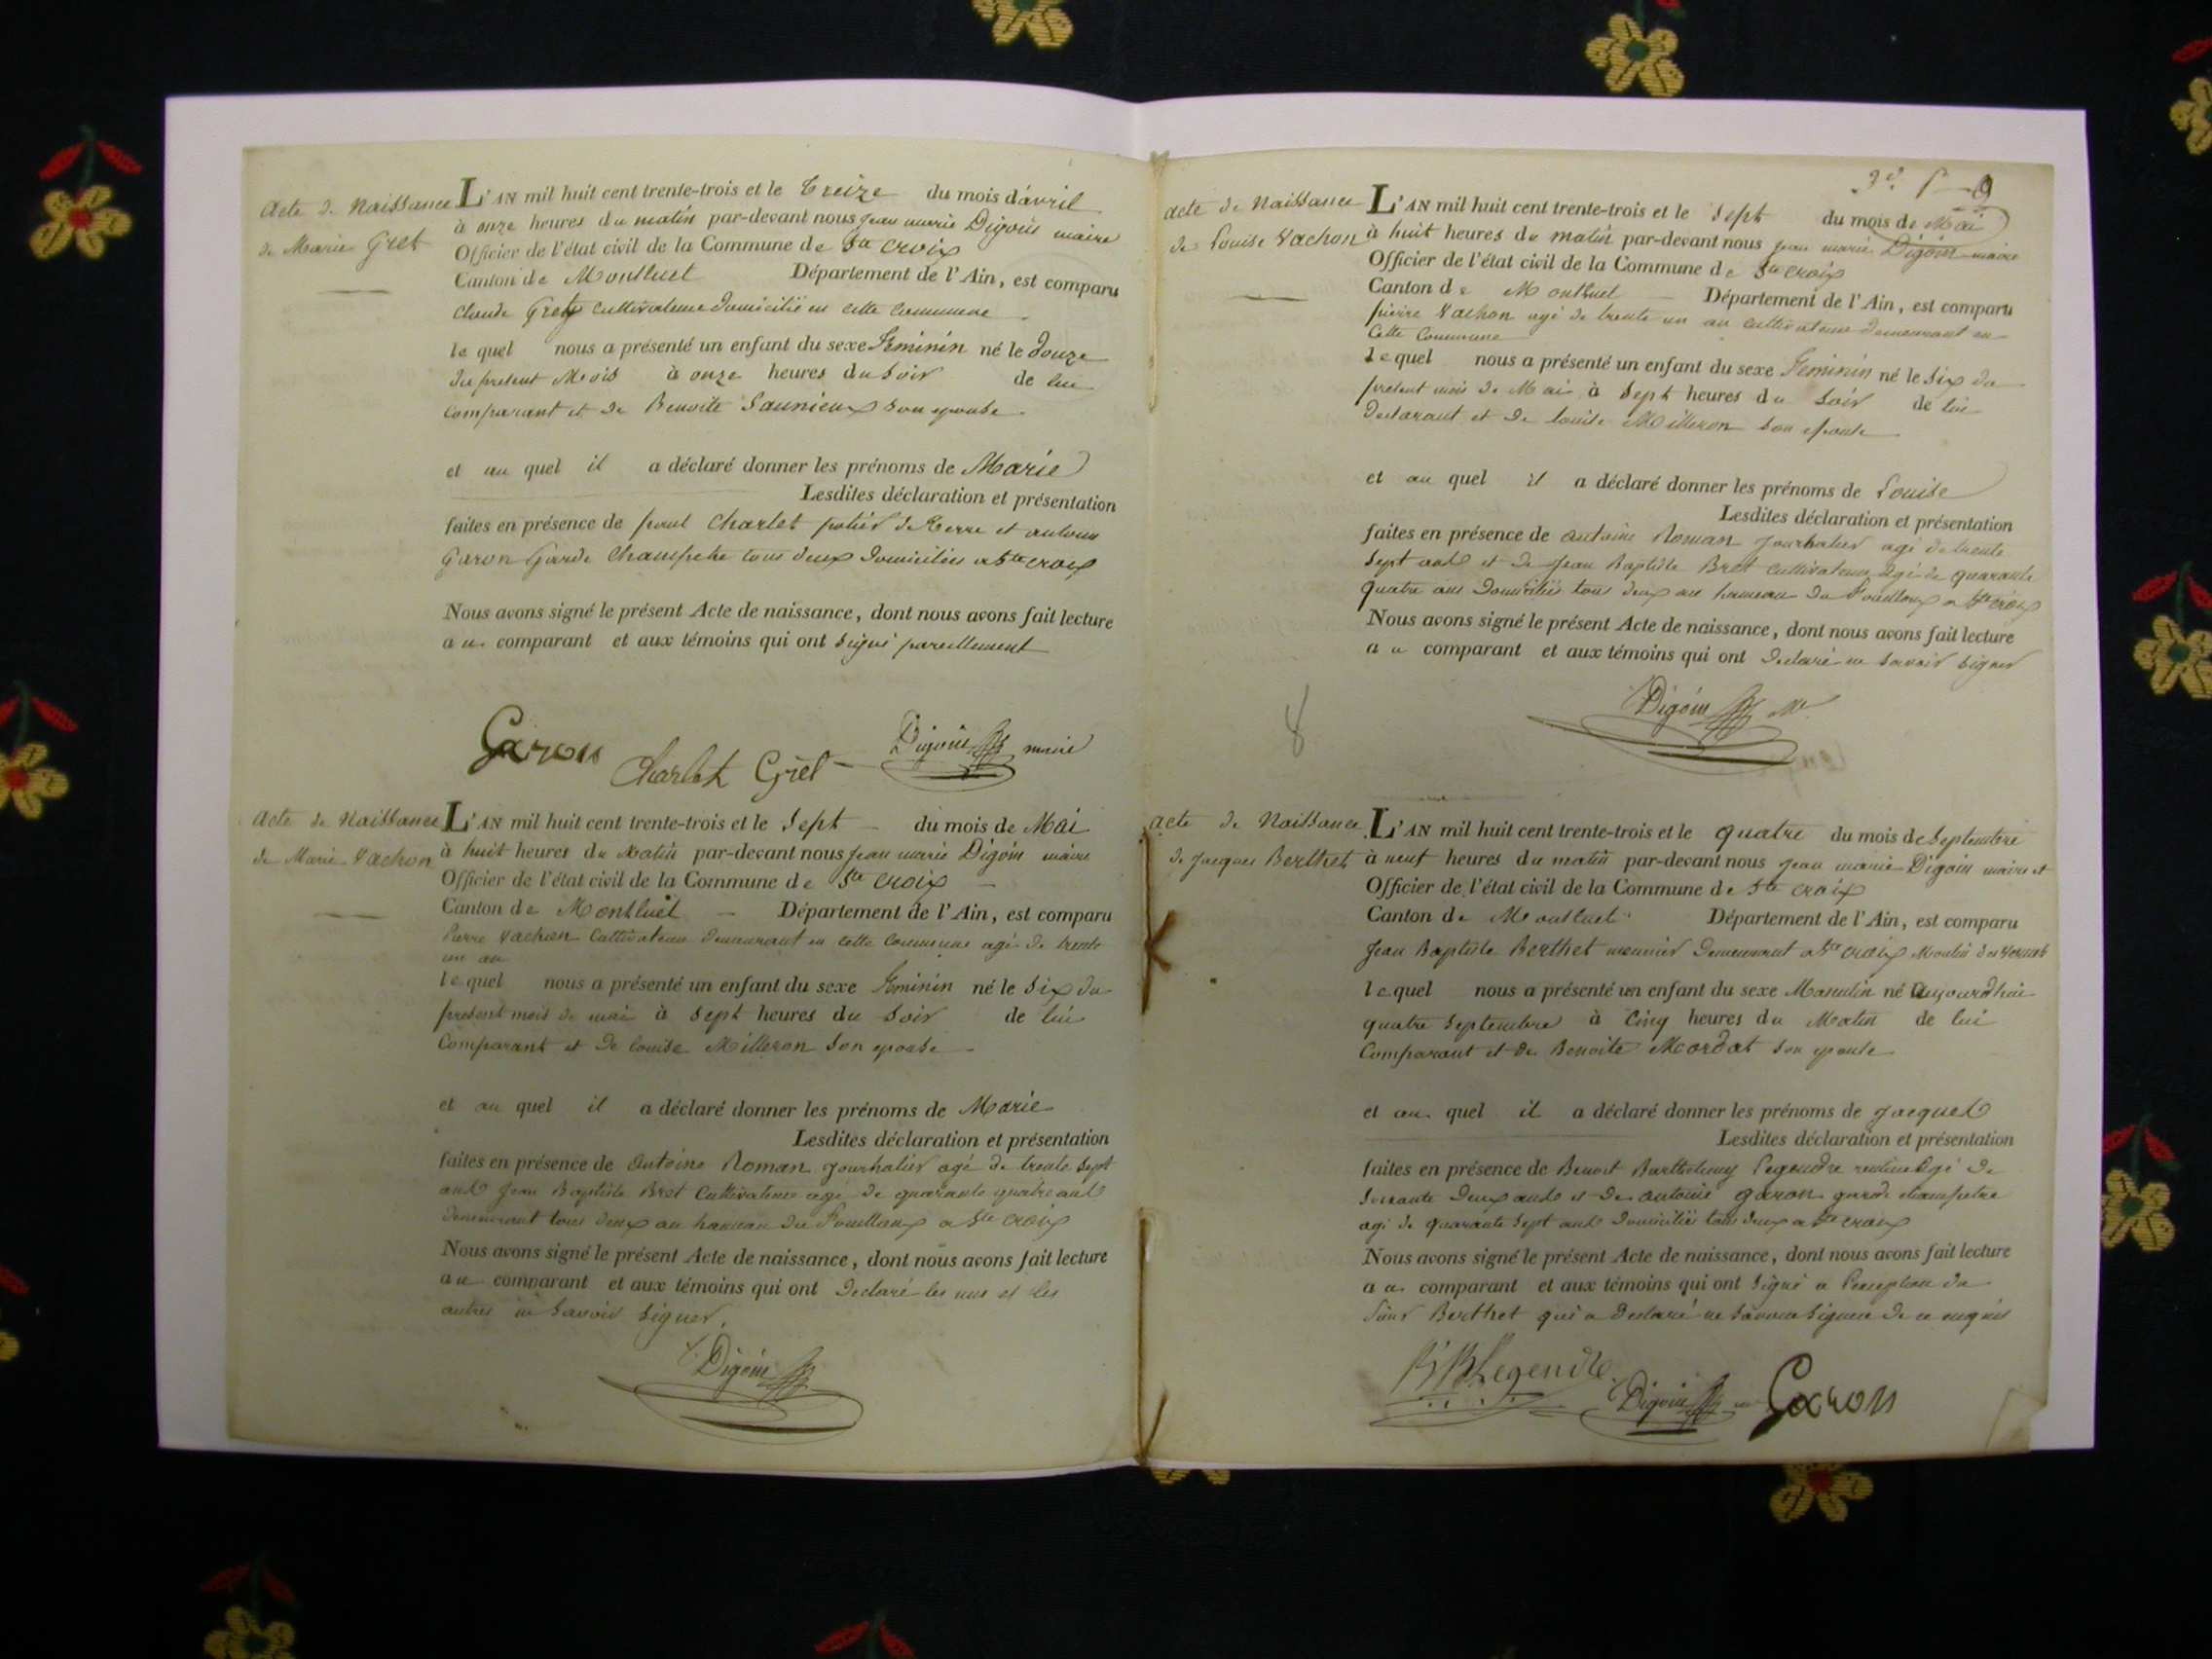 Acte de Naissance
de Marie Gret
L'AN mil huit cent trente-trois et le treize du mois d'avril
à onze heures du matin par-devant nous jean marie Digoin maire
Officier de l'état civil de la Commune de Ste croix
Canton de Montluel Département de l'Ain, est comparu
Claude Gret cultivateur domicilié en cette commune
lequel nous a présenté un enfant du sexe Féminin né le douze
du present Mois à onze heures du Soir de lui
comparant et de Benoite Saunieux son epouse
et au quel il a déclaré donner les prénoms de Marie
Lesdites déclaration et présentation
faites en présence de paul Charlet potier de terre et antoine
Garon Garde Champetre tous deux domiciliés a Ste croix
Nous avons signé le présent Acte de naissance, dont nous avons fait lecture
au comparant et aux témoins qui ont signé pareillement
Garon Charlet Gret Digoin maire
Acte de Naissance
de Marie Vachon
L'AN mil huit cent trente-trois et le Sept du mois de Mai
à huit heures du Matin par-devant nous jean marie Digoin maire
Officier de l'état civil de la Commune de Ste Croix
Canton de Montluel Département de l'Ain, est comparu
Pierre Vachon Cultivateur demeurant en cette commune agé de trente
un an
lequel nous a présenté un enfant du sexe Féminin né le Six du
present mois de mai à Sept heures du Soir de lui
Comparant et de louise Milleron Son epouse
et au quel il a déclaré donner les prénoms de Marie
Lesdites déclaration et présentation
faites en présence de Antoine Roman journalier agé de trente Sept
ans Jean Baptiste Bret Cultivateur agé de quarante quatre ans
demeurant tous deux au hameau du Pouilloux a Ste Croix
Nous avons signé le présent Acte de naissance, dont nous avons fait lecture
au comparant et aux témoins qui ont Declaré les uns et les
autres ne Savoir Signer.
Digoin
Acte de Naissance
de Louise Vachon
L'AN mil huit cent trente-trois et le Sept du mois de Mai
à huit heures du matin par-devant nous jean marie Digoin maire
Officier de l'état civil de la Commune de Ste croix
Canton de Montluel Département de l'Ain, est comparu
pierre Vachon agé de trente un an cultivateur demeurant en
Cette Commune
lequel nous a présenté un enfant du sexe Féminin né le Six du
présent mois de Mai à Sept heures du Soir de lui
declarant et de louise Milleron Son epouse
et au quel il a déclaré donner les prénoms de Louise
Lesdites déclaration et présentation
faites en présence de antoine Roman journalier agé de trente
Sept ans et de Jean Baptiste Bret cultivateur agé de quarante
quatre ans Domiciliés tous deux au hameau du Pouilloux a Ste croix
Nous avons signé le présent Acte de naissance, dont nous avons fait lecture
au comparant et aux témoins qui ont declaré ne Savoir Signer
Digoin
8
Acte de Naissance
de Jacques Berthet
L'AN mil huit cent trente-trois et le quatre du mois de Septembre
à neuf heures du matin par-devant nous jean marie Digoin maire et
Officier de l'état civil de la Commune de Ste croix
Canton de Montluel Département de l'Ain, est comparu
Jean Baptiste Berthet meunier Demeurant a Ste croix Moulin des
lequel nous a présenté un enfant du sexe Masculin né aujourdhui
quatre Septembre à Cinq heures du Matin de lui
Comparant et de Benoite Mcordat Son epouse
et au quel il a déclaré donner les prénoms de jacques
Lesdites déclaration et présentation
faites en présence de Benoit Barthelemy Legendre rentier agé de
Soixante Deux ans et de antoine garon garde champetre
agé de quarante Sept ans Domiciliés tous deux a Ste croix
Nous avons signé le présent Acte de naissance, dont nous avons fait lecture
au comparant et aux témoins qui ont Signé a l'exception du
Sieur Berthet qui a Declaré ne Savoir Signer de ce enquis
Legendre Digoin Garon